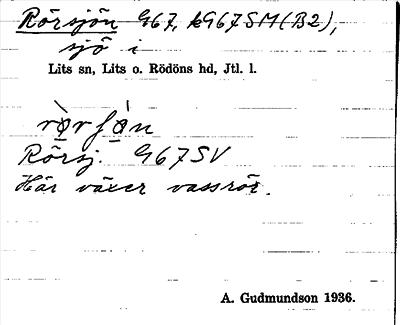 Rörsjön G67, kG67SM(B2),
sjö i
Lits sn, Lits o. Rödöns hd, Jtl. l.
Rörsj. G67SV
Här växer vassrör.
A. Gudmundson 1936.